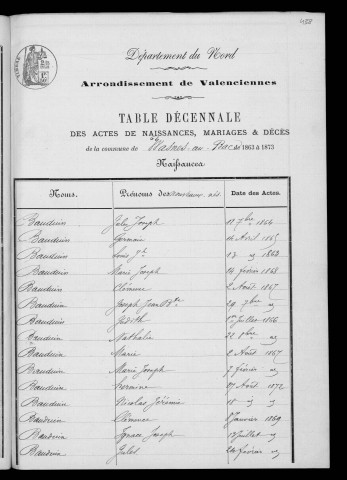 488
Département du Nord
Arrondissement de Valenciennes
TABLE DÉCENNALE
DES ACTES DE NAISSANCES, MARIAGES & DÉCÈS
de la commune de Wasnes-au-Bac de 1863 à 1873
Naissances
Noms. Prénoms des nouveaux nés. Date des Actes.
Bauduin Jules Joseph 18 7bre 1864
Bauduin Germain 14 Avril 1865
Bauduin Louis Jh 13 1863
Bauduin Marie Joseph 14 février 1868
Bauduin Clémence 2 Août 1867
Bauduin Joseph Jean Bte 29 7bre
Bauduin Judith 1er Juillet 1866
Bauduin Nathalie 22 8bre
Bauduin Marie 2 Août 1867
Bauduin Marie Joseph 7 février
Bauduin Hermine 17 Août 1872
Bauduin Nicolas Jérémie 18
Bauduin Clémence 8 Janvier 1869
Bauduin Ignace Joseph 13 Juillet
Bauduin Jules 24 février